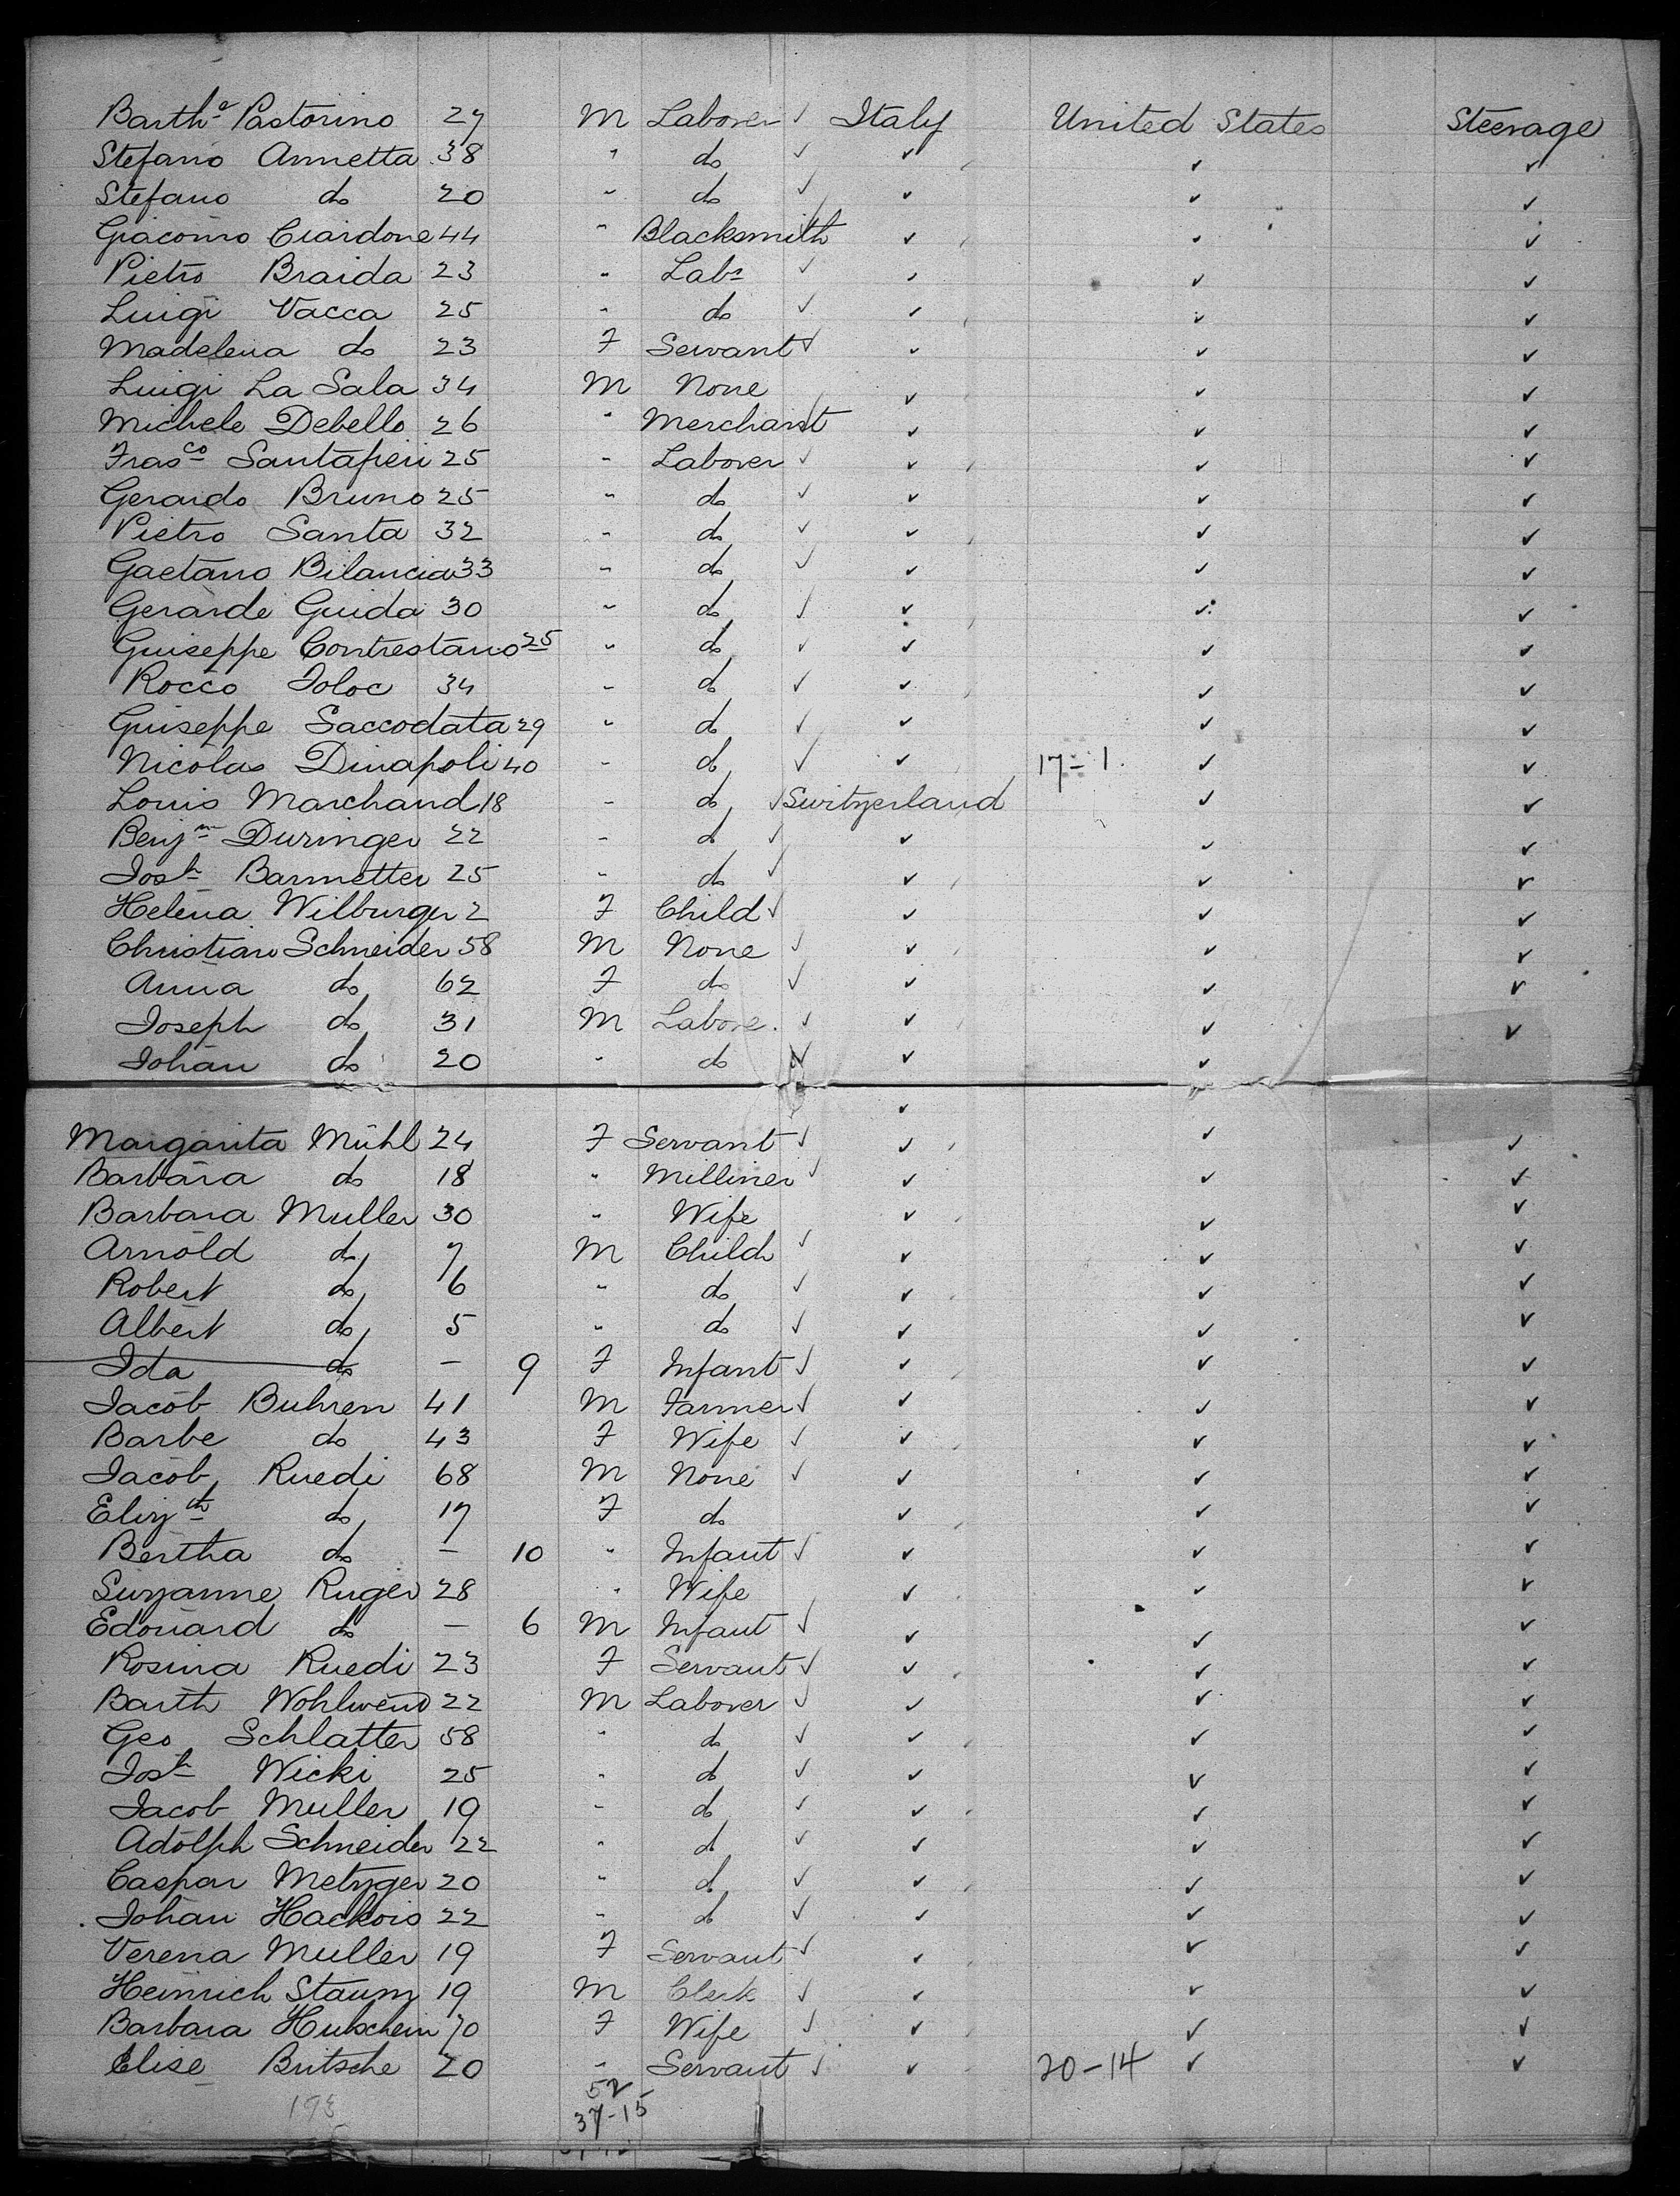 Barth^a Pastorino 27 M Laborer ✓ Italy United States Steerage
Stefano Annetta 38 " do ✓ ✓ ✓ ✓
Stefano do 20 " do ✓ ✓ ✓ ✓
Giacomo Ciardone 44 " Blacksmith ✓ ✓ ✓ ✓
Pietro Braida 23 " Labr ✓ ✓ ✓ ✓
Luigi Vacca 25 " do ✓ ✓ ✓ ✓
Madelena do 23 F Servant ✓ ✓ ✓ ✓
Luigi La Sala 34 M None ✓ ✓ ✓
Michele Debello 26 " Merchant ✓ ✓ ✓ ✓
Fras^co Santaperi 25 " Laborer ✓ ✓ ✓ ✓
Gerardo Bruno 25 " do ✓ ✓ ✓ ✓
Pietro Santa 32 " do ✓ ✓ ✓ ✓
Gaetano Bilancia 33 " do ✓ ✓ ✓ ✓
Gerarde Guida 30 " do ✓ ✓ ✓ ✓
Guiseppe Contrestano 25 " do ✓ ✓ ✓ ✓
Rocco Ioloc 34 " do ✓ ✓ ✓ ✓
Guiseppe Saccodata 29 " do ✓ ✓ ✓ ✓
Nicolas Dinapoli 40 " do ✓ ✓ 17-1 ✓ ✓
Louis Marchand 18 " do ✓ Switzerland ✓ ✓
Benj^m Duringer 22 " do ✓ ✓ ✓ ✓
Jos^h Barmetter 25 " do ✓ ✓ ✓ ✓
Helena Wilburger 2 F Child ✓ ✓ ✓ ✓
Christian Schneider 58 M None ✓ ✓ ✓ ✓
Anna do 62 F do ✓ ✓ ✓ ✓
Joseph do 31 M Labore. ✓ ✓ ✓ ✓
Johan do 20 " do ✓ ✓ ✓
Margarita Mühl 24 F Servant ✓ ✓ ✓ ✓
Barbara do 18 " Milliner ✓ ✓ ✓ ✓
Barbara Muller 30 " Wife ✓ ✓ ✓
Arnold do 7 M Child ✓ ✓ ✓ ✓
Robert do 6 " do ✓ ✓ ✓ ✓
Albert do 5 " do ✓ ✓ ✓ ✓
Ida do — 9 F Infant ✓ ✓ ✓ ✓
Jacob Buhrem 41 M Farmer ✓ ✓ ✓ ✓
Barbe do 43 F Wife ✓ ✓ ✓ ✓
Jacob Ruedi 68 M None ✓ ✓ ✓ ✓
Eliz^th do 17 F do ✓ ✓ ✓
Bertha do — 10 " Infant ✓ ✓ ✓ ✓
Suzanne Ruger 28 " Wife ✓ ✓ ✓
Edouard do — 6 M Infant ✓ ✓ ✓ ✓
Rosina Ruedi 23 F Servant ✓ ✓ ✓ ✓
Barth Wohlwend 22 M Laborer ✓ ✓ ✓ ✓
Geo Schlatter 58 " do ✓ ✓ ✓ ✓
Jos^h Wicki 25 " do ✓ ✓ ✓ ✓
Jacob Muller 19 " do ✓ ✓ ✓ ✓
Adolph Schneider 22 " do ✓ ✓ ✓ ✓
Caspar Metzger 20 " do ✓ ✓ ✓ ✓
Johan Hackois 22 " do ✓ ✓ ✓ ✓
Verena Muller 19 F Servant ✓ ✓ ✓ ✓
Heinrich Staum 19 M Clerk ✓ ✓ ✓ ✓
Barbara Hubschein 70 F Wife ✓ ✓ ✓ ✓
Elise Britsche 20 " Servant ✓ ✓ 20-14 ✓ ✓
52
193 37-15